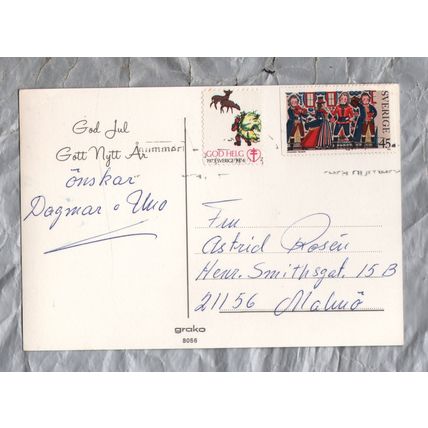 God Jul
Gott Nytt År
önskar
Dagmar o Uno
GOD HELG
1973 SVERIGE 1974
SVERIGE
45
Fru
Astrid Rosén
Henr. Smithsgat. 15 B
21156 Malmö
grako
8066